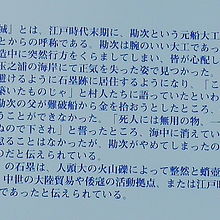 城』とは、江戸時代末期に、勘次という元船大工
からの呼称である。勘次は腕のいい大工であっ
造中に突然行方をくらましてしまい、皆が心配し
玉之浦の海岸にて正気を失った姿で見つかった。
避けるように石塁跡に居住するようになり、「こ
築いたものじゃ」と村人たちに語っていたといわ
勘次の父が難破船から金を拾おうとしたところ、
ことができなかった。「死人には無用の物、一
なので下され」と誓ったところ、海中に消えてい
ることはなかったが、勘次がやめてしまったの
のだと伝えられている。
の石塁は、人頭大の火山礫によって整然と蛸壺
中世の大陸貿易や倭寇の活動拠点、または江戸時
であったと伝えられている。